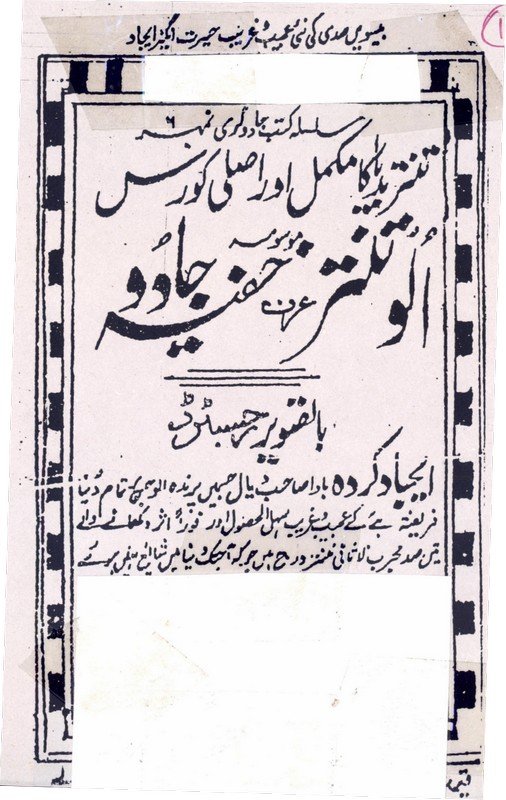 بیسویں صدی کی نئی عجیب و غریب حیرت انگیز ایجاد
سلسلہ کتب جادوگری نمبر ۶
تنتر بدیا کا مکمل اور اصلی کورس
موسومہ
اُلو تنتر عرف خفیہ جادو
باتصویر رجسٹرڈ
ایجاد کردہ باوا صاحب دیال جسمیں پرندہ الو جس پر تمام دُنیا
فریفتہ ہے کے عجیب و غریب سہل الحصول اور فوراً اثر دکھانے والے
تین صد مجرب لاثانی تنتر درج ہیں جو کہ آجتک دنیا میں شائع نہیں ہوئے